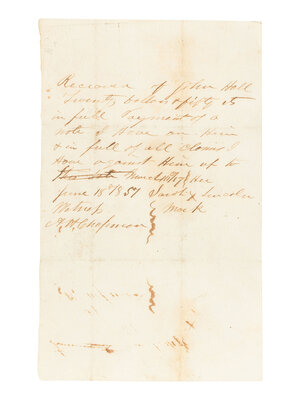 Received of John Hall
Twenty dollars & fifty cts
in full Payment of a
note I Have on Him
& in full of all Claims I
Have against Him up to
June 18 1851 Sarah X Lincoln
Witness Mark
A. H. Chapman